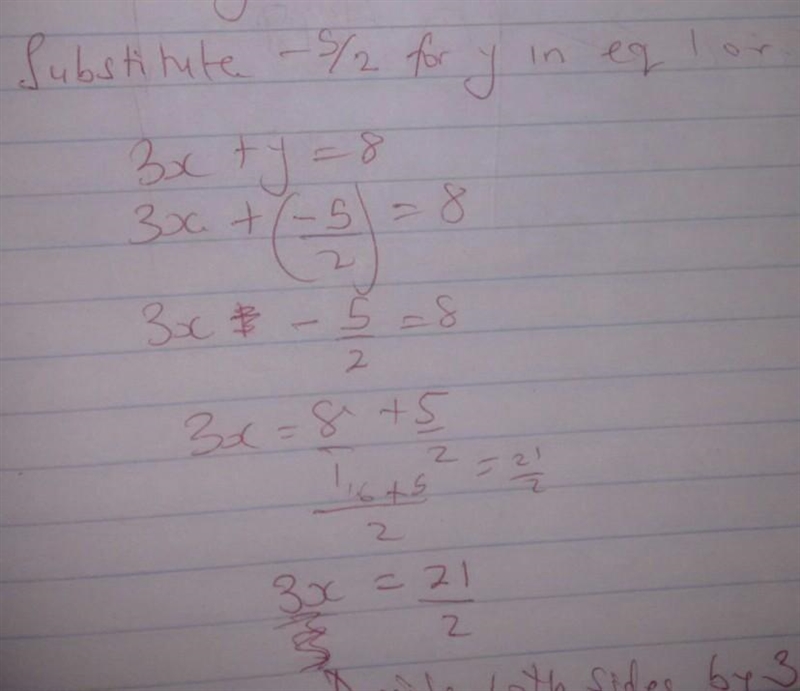 Substitute -5/2 for y in eq 1 or
3x + y = 8
3x + (-5/2) = 8
3x - 5/2 = 8
3x = 8/1 + 5/2
16+5/2 = 21/2
3x = 21/2
both sides by 3